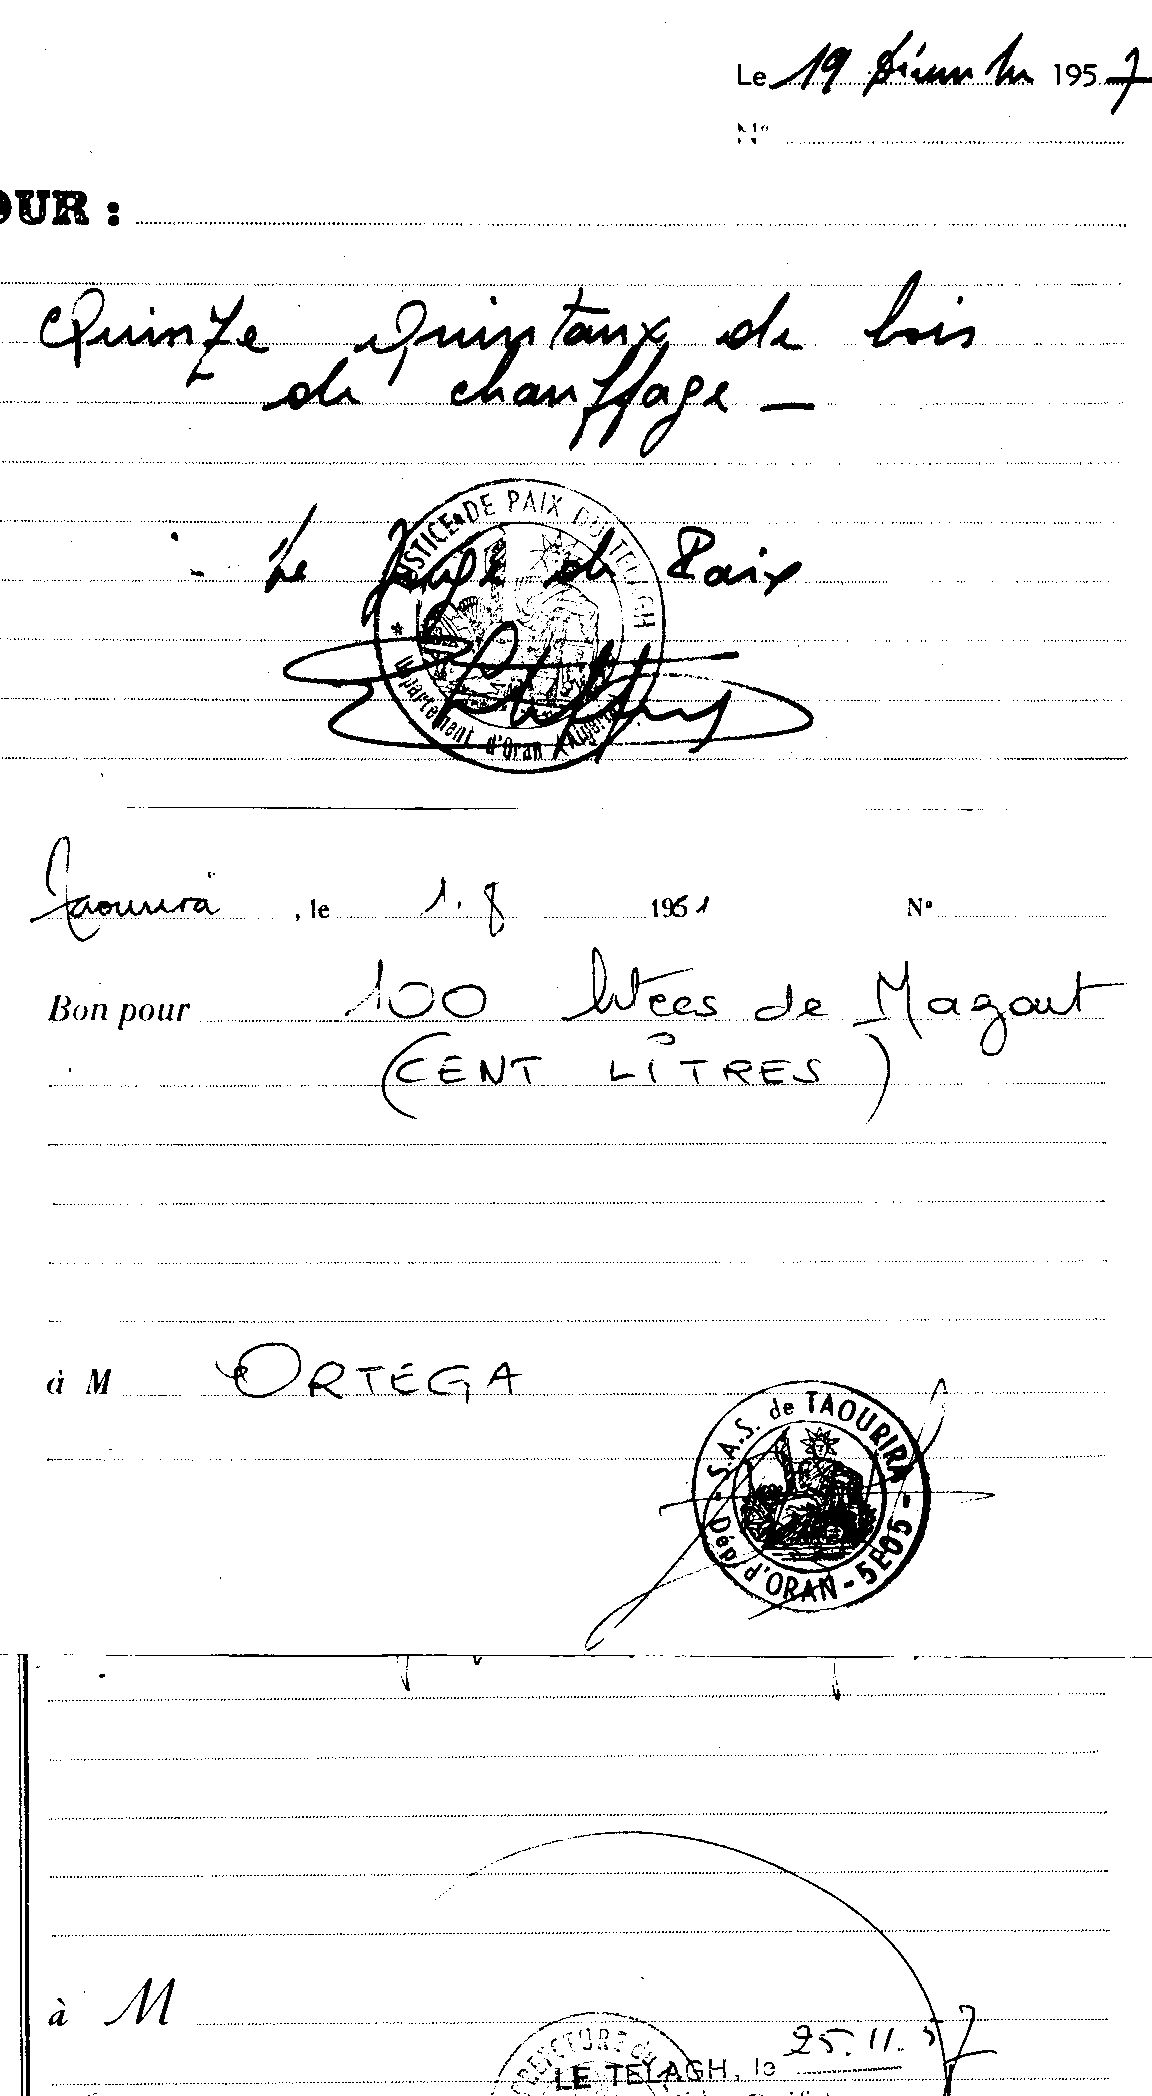 Le 19 Décembre 1957
N°
OUR :
Quinze Quintaux de bois
de chauffage —
Le Juge de Paix
JUSTICE DE PAIX DU TELAGH
Département d'Oran (Algérie)
Taourira , le 1. 8 1961 N°
Bon pour 100 litres de Mazout
(CENT LITRES)
à M ORTEGA
S.A.S. de TAOURIRA
Dép. d'ORAN - 5E05 -
à M
25.11.57
LE TELAGH, le